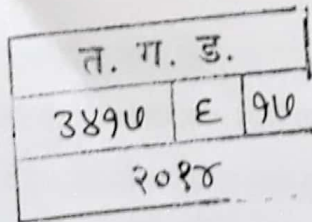 त. ग. ड.
३४१७ ६ १७
२०१४